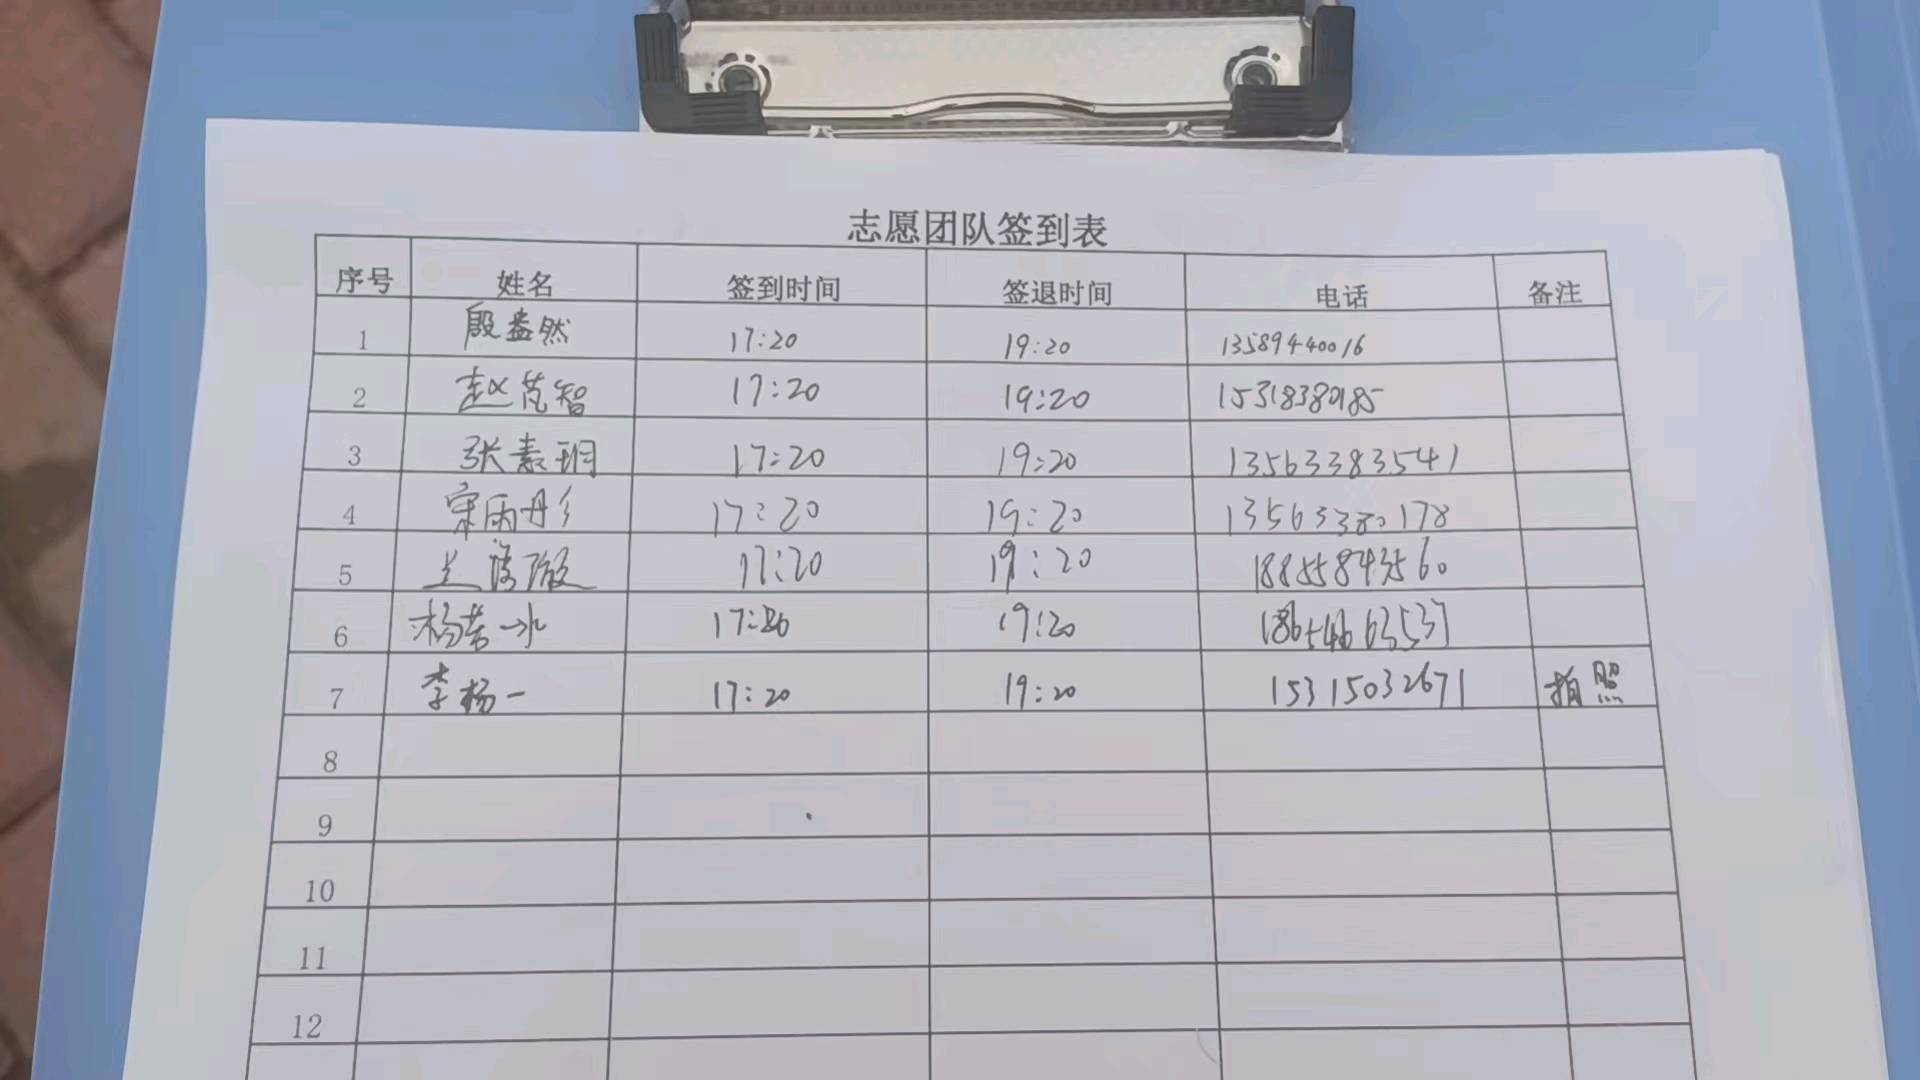 志愿团队签到表
序号 姓名 签到时间 签退时间 电话 备注
1 殷盎然 17:20 19:20 13589440016
2 赵芃智 17:20 19:20 15318380185
3 张素玥 17:20 19:20 13563383541
4 宋雨彤 17:20 19:20 13563380178
5 17:20 19:20
6 杨若冰 17:20 19:20
7 李杨一 17:20 19:20 15315032671 拍照
8
9
10
11
12